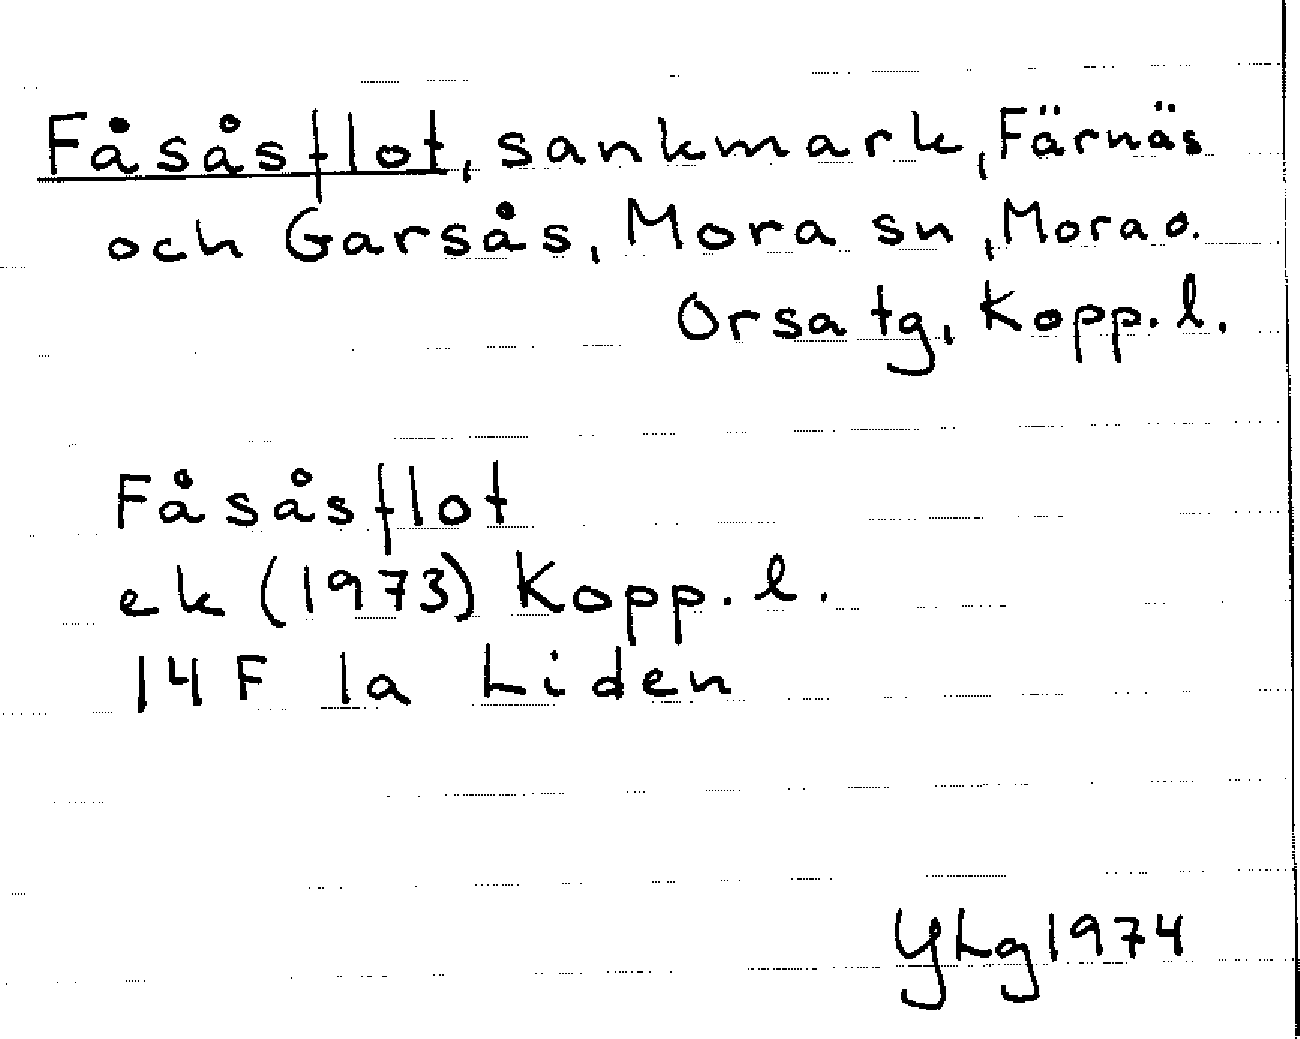 Fåsåsflot, sankmark, Färnäs
och Garsås, Mora sn, Mora o.
Orsa tg, Kopp. l.
Fåsåsflot
ek (1973) Kopp. l.
14 F 1a Liden
YLg 1974